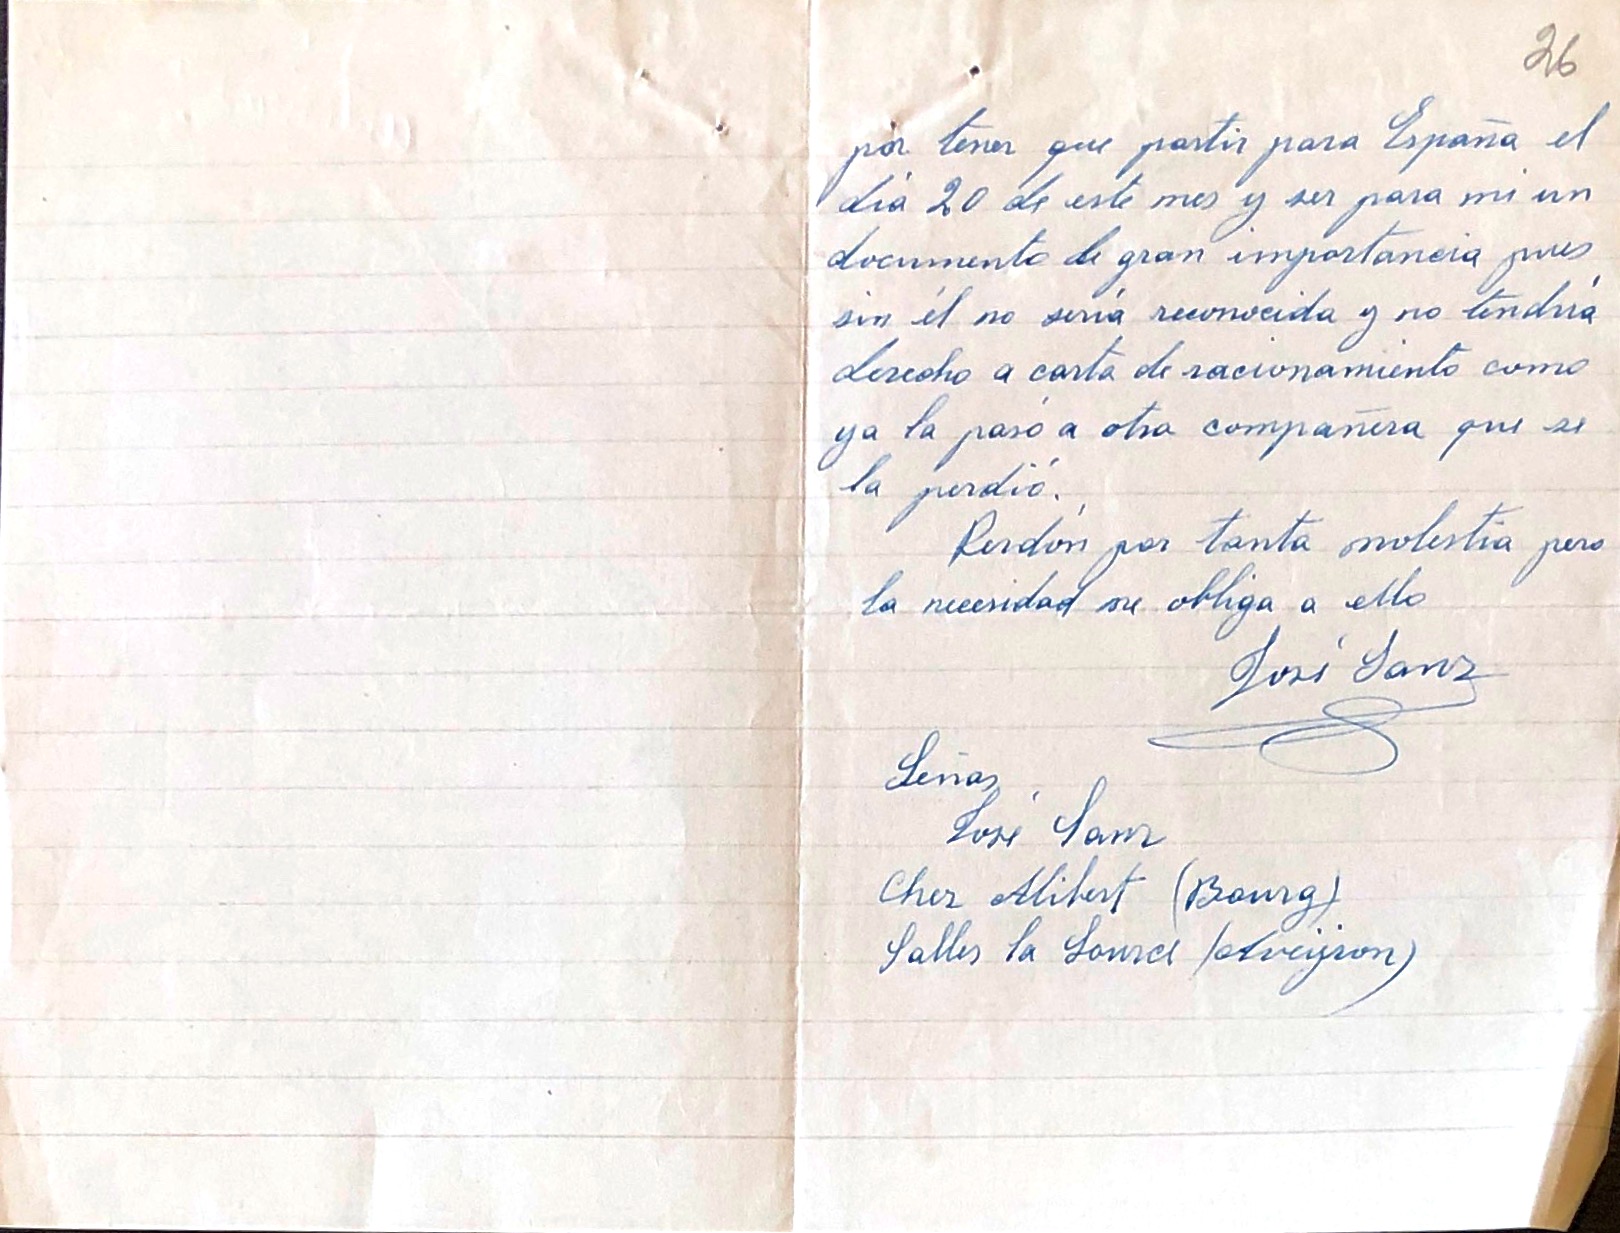 26
por tener que partir para España el
día 20 de este mes y ser para mi un
documento de gran importancia pues
sin él no sería reconocida y no tendría
derecho a carta de racionamiento como
ya la pasó a otra compañera que se
la perdió.
Perdón por tanta molestia pero
la necesidad me obliga a ello
José Sanz
Señas
José Sanz
Chez Alibert (Bourg)
Salles la Source (Aveyron)